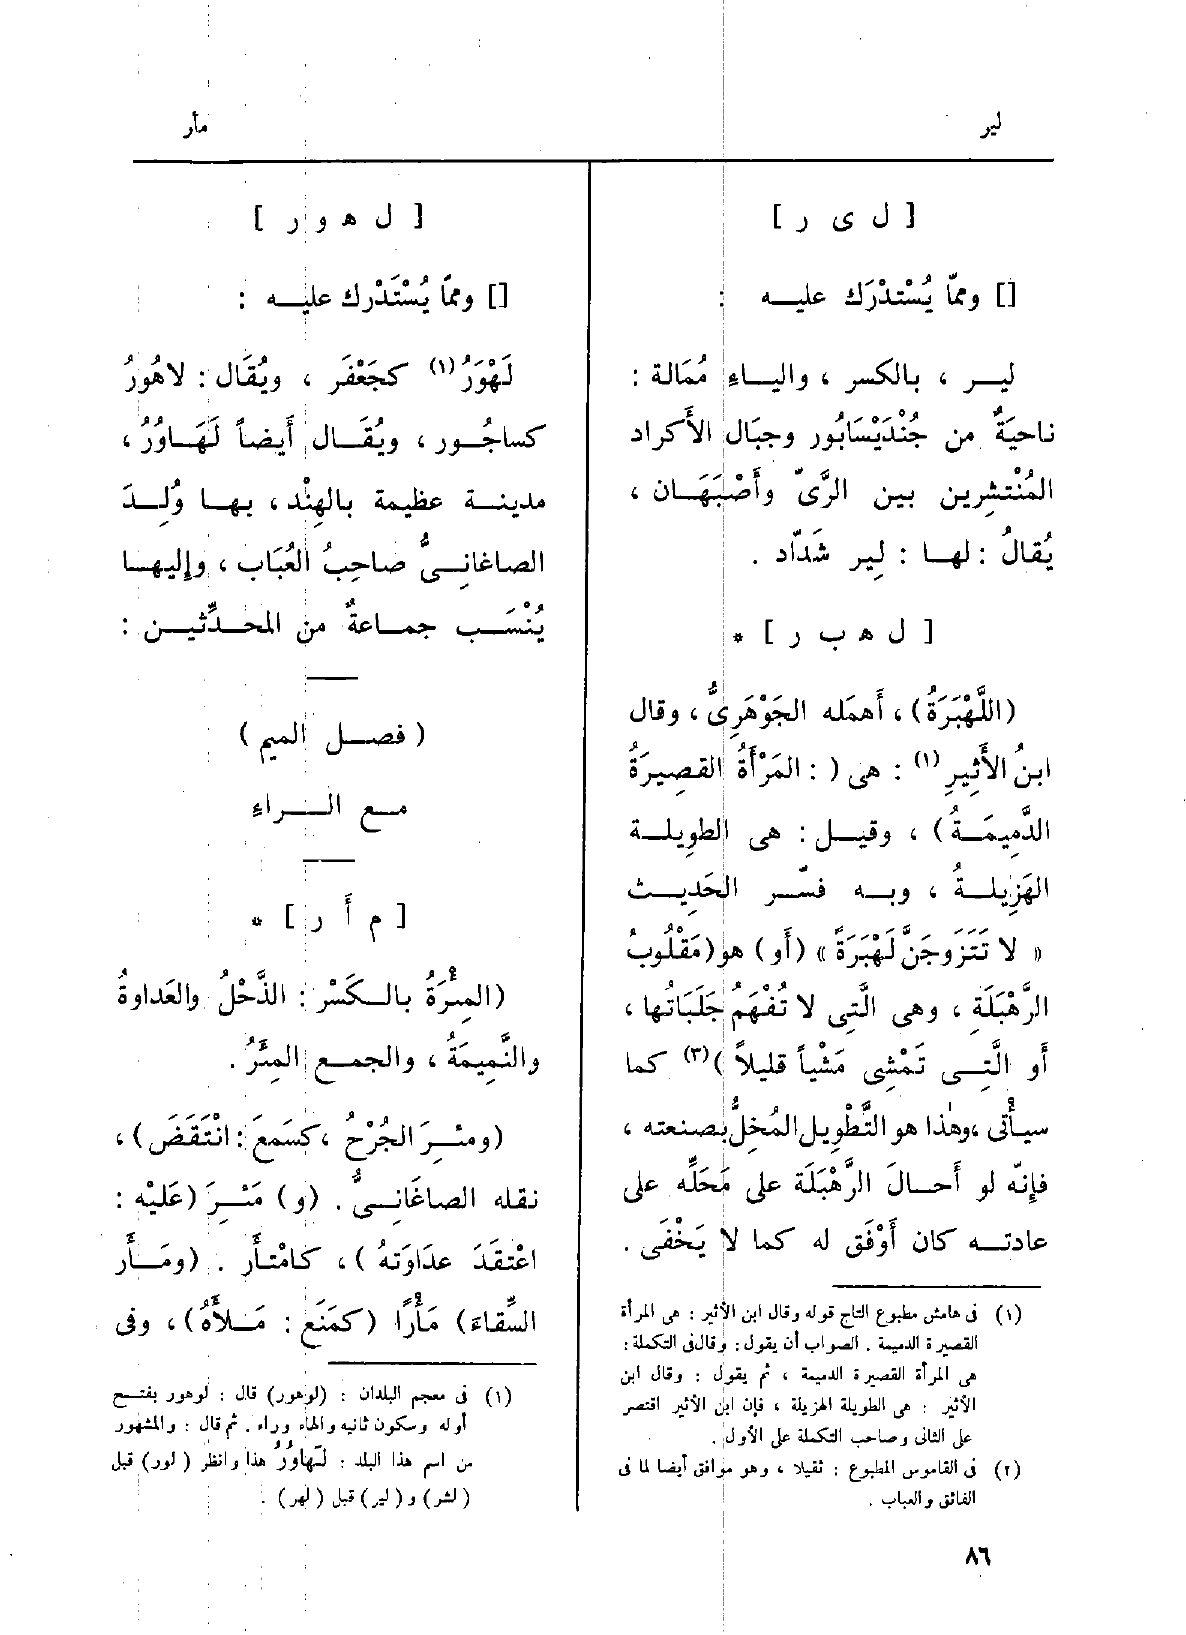 لير
مأر
[ ل ى ر ]
[] وممّا يُسْتدْرَك عليـــه :
ليــر ، بالكسر ، واليــاءِ مُمَالة :
ناحيَةٌ من جُنْدَيْسَابُور وجبَال الأَكراد
المُنْتشرِين بين الرَّىّ وأَصْبَهَــان ،
يُقالُ : لهــا : لِير شَدّاد .
[ ل ه ب ر ] *
(اللَّهْبَرَةُ) ، أَهمَله الجَوْهَرِىُّ ، وقال
ابنُ الأَثِيرِ (١) : هى ( : المَرْأَةُ القصِيرَةُ
الدَّمِيمَــةُ ) ، وقيــل : هى الطوِيلــة
الهَزِيلــةُ ، وبــه فسّــر الحَديــث
« لا تَتَزَوجَنَّ لَهْبَرَةً » (أَو) هو (مَقْلُوبُ
الرَّهْبَلَة ، وهى الَّتِى لا تُفْهَمُ جَلَبَاتُها ،
أَو الَّتِــى تَمْشِى مَشْياً قليلاً )(٢) كما
سيــأْتى ، وهٰذا هو التَّطْوِيل المُخِلُّ بصنعته ،
فإِنّه لو أَحــالَ الرَّهْبَلَة على مَحَلِّه على
عادتــه كان أَوْفَق له كما لا يَخْفَى .
(١) فى هامش مطبوع التاج قوله وقال ابن الأثير : هى المرأة
القصيرة الدميمة . الصواب أن يقول : وقال فى التكملة :
هى المرأة القصيرة الدميمة ، ثم يقول : وقال ابن
الأثير : هى الطويلة الهزيلة ، فإن ابن الأثير اقتصر
على الثانى وصاحب التكملة على الأول .
(٢) فى القاموس المطبوع : ثقيلا ، وهو موافق أيضا لما فى
الفائق والعباب .
[ ل ه و ر ]
[] وممّا يُسْتَدْرك عليــه :
لَهْوَرُ(١) كجَعْفَر ، ويُقَال : لاهُورُ
كساجُــور ، ويُقَــال أَيضاً لَهَــاوُرُ ،
مدينــة عظيمة بالهِنْد ، بهــا وُلِــدَ
الصاغانِــىُّ صاحِبُ العُبَاب ، وإِليهــا
يُنْسَــب جمــاعةٌ من المحــدِّثيــن :
( فصــل الميم )
مــع الــراءِ
[ م أ ر ] *
(المِئْرَةُ بالــكَسْر : الذَّحْلُ والعَداوةُ
والنَّمِيمَةُ ، والجمــع المِئَرُ .
(ومَئِرَ الجُرْحُ ، كسَمِعَ : انْتَقَضَ) ،
نقله الصاغَانِــىُّ . (و) مَئِــرَ (عَلَيْه :
اعْتقَدَ عدَاوَتهُ ) ، كامْتأَر . (ومَــأَر
السِّقَاءَ) مَأْرًا (كمَنَع : مَــلأَهُ) ، وفى
(١) فى معجم البلدان : (لوهور) قال : لَوهور بفتــح
أوله وسكون ثانيه والهاء وراء . ثم قال : والمشهور
من اسم هذا البلد : لَهاوُرُ هذا وانظر ( لور) قبل
(لشر) و (لير) قبل (لهر) .
٨٦